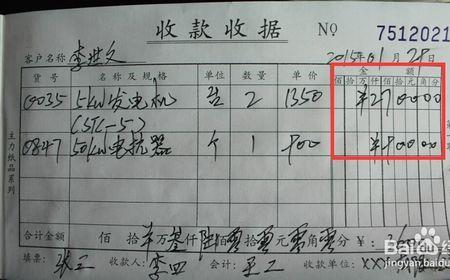 收款收据 NO 7512021
客户名称 李世文 2015年01月28日
货号 名称及规格 单位 数量 单价 金额
佰拾万仟佰拾元角分
0035 5kW发电机 台 2 1350 ¥270000
(STC-5)
0847 50kW电抗器 个 1 900 ¥90000
主力纸品系列
合计金额 佰 拾 万 仟 陆佰零拾零元零角零分 ¥:
填票: 张三 收款人: 李四 会计: 王二 收款单位: XX
Baidu 经验
jingyan.baidu.com